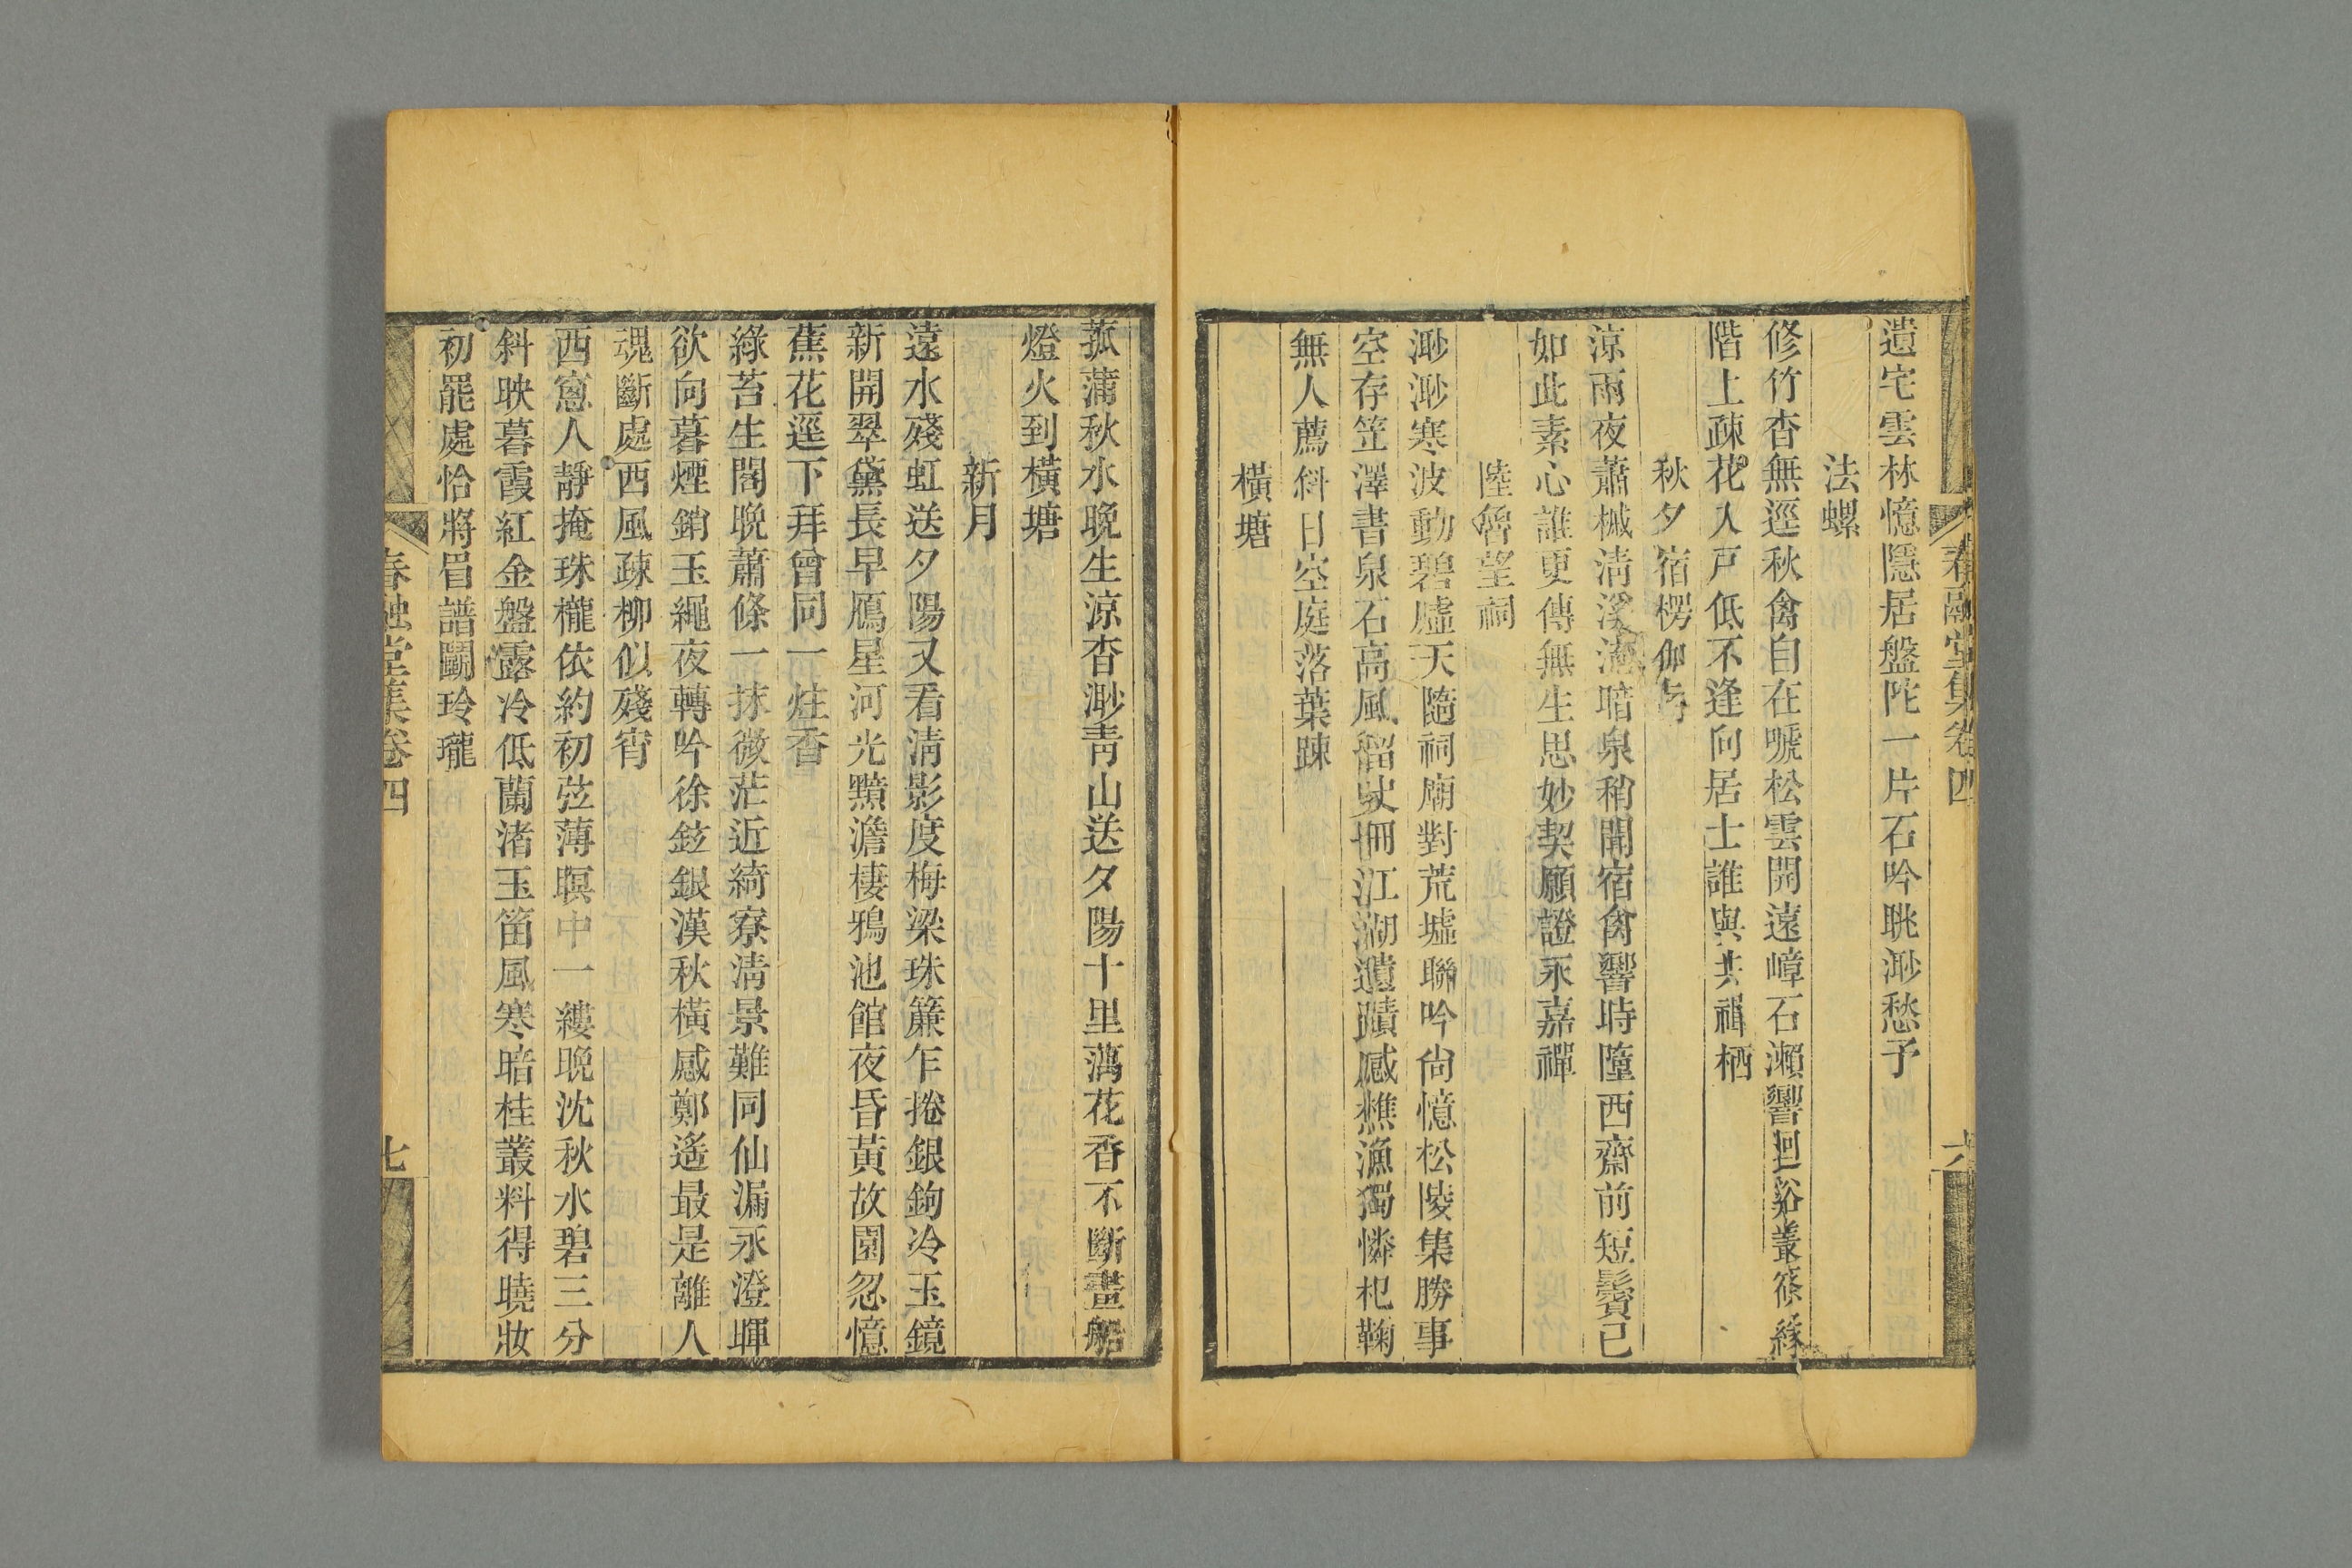 春融堂集卷四
六
遺宅雲林憶隱居盤陀一片石吟眺渺愁予
法螺
修竹杳無逕秋禽自在嗁松雲開遠嶂石瀨響迴谿叢篠緣
階上疎花入戸低不逢向居士誰與共禪栖
秋夕宿楞伽寺
涼雨夜蕭槭淸溪流暗泉稍聞宿禽響時墮西齋前短鬢已
如此素心誰更傳無生思妙契願證永嘉禪
陸魯望祠
渺渺寒波動碧虛天隨祠廟對荒墟聯吟尙憶松陵集勝事
空存笠澤書泉石高風畱史冊江湖遺蹟感樵漁獨憐杞鞠
無人薦斜日空庭落葉踈
橫塘
菰蒲秋水晚生涼杳渺靑山送夕陽十里藕花香不斷畫船
燈火到橫塘
新月
遠水殘虹送夕陽又看淸影度梅梁珠簾乍捲銀鉤冷玉鏡
新開翠黛長早鴈星河光黯澹棲鴉池館夜昏黃故園忽憶
蕉花逕下拜曾同一炷香
綠苔生閣晚蕭條一抹微茫近綺寮淸景難同仙漏永澄暉
欲向暮煙銷玉繩夜轉吟徐鉉銀漢秋橫感鄭遙最是離人
魂斷處西風疎柳似殘宵
西窻人靜掩珠櫳依約初弦薄暝中一縷晚沈秋水碧三分
斜映暮霞紅金盤露冷低蘭渚玉笛風寒暗桂叢料得曉妝
初罷處恰將眉譜鬭玲瓏
春融堂集卷四
七